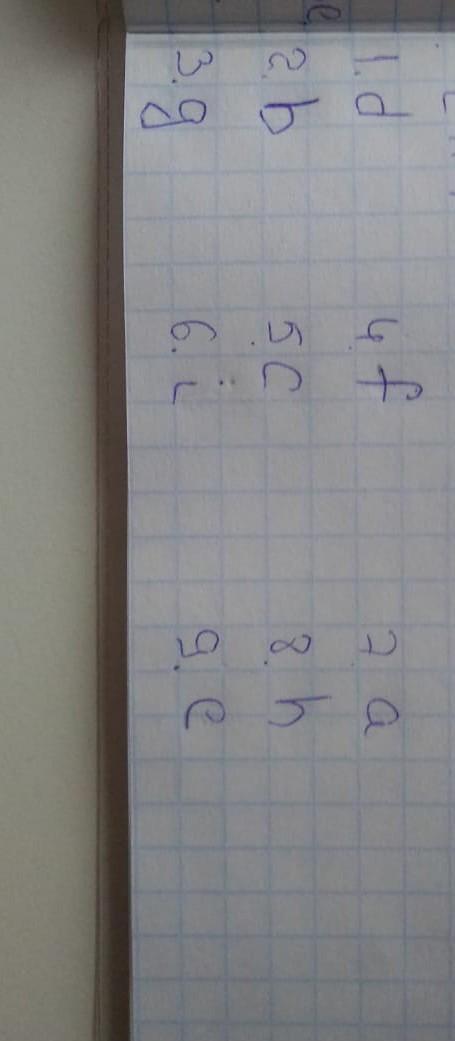 1. d 4. f 7 a
2. b 5. c 8. h
3. g 6. i 9. e